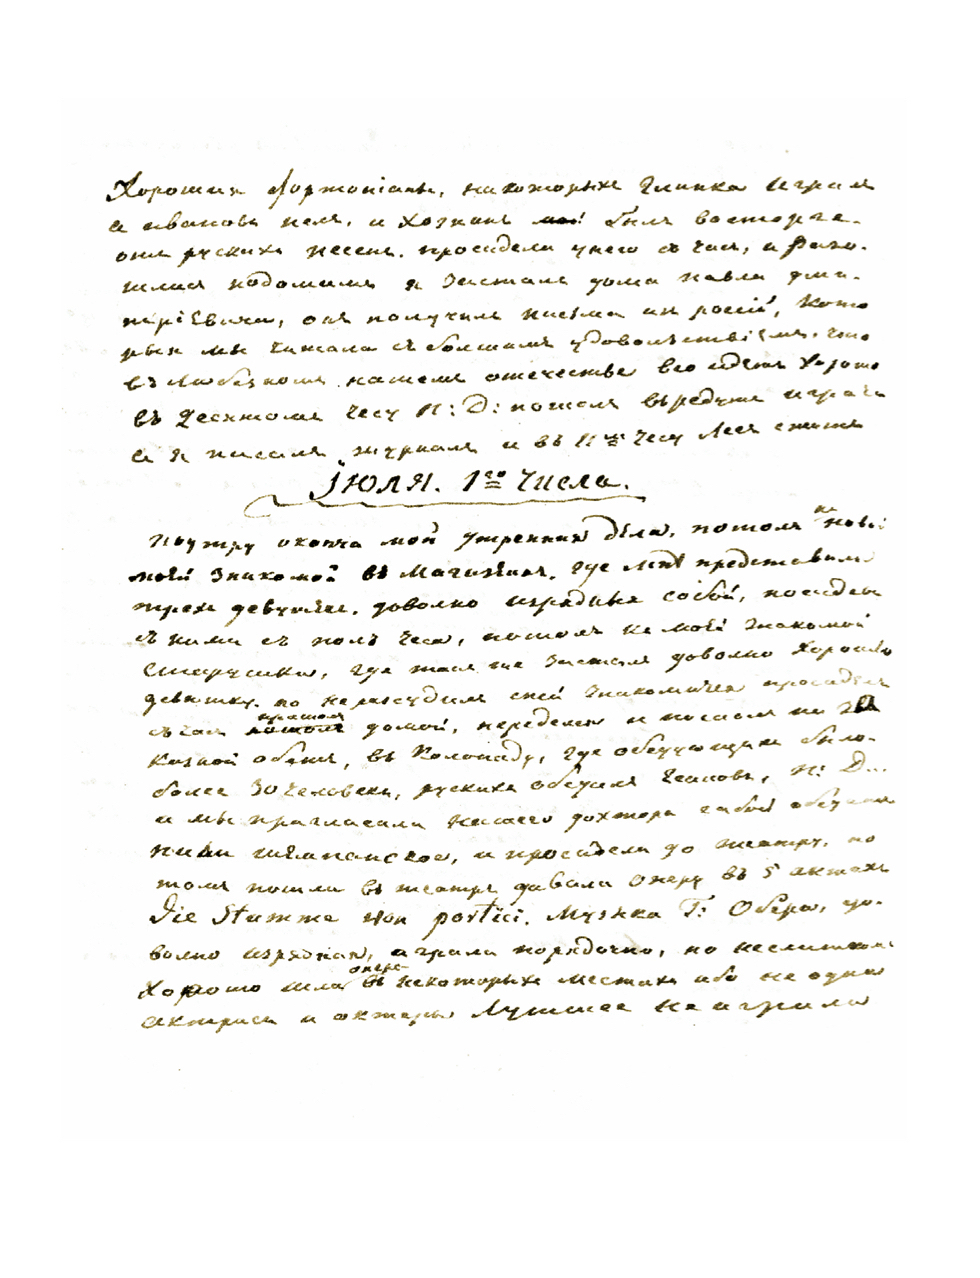 Хорошия фортопіаны, накоторыхъ Глинка играл
а ивановъ пелъ, и хозяинъ былъ восторге.
онъ рускихъ песенъ. просидели унего съ часъ, и разо.
шлися подомамъ я засталъ дома павла дми.
трієвича, онъ получилъ писма из росіи, кото
рыя мы читали съ болшимъ удоволствіемъ. что
въ любезномъ нашемъ отечестве все идетъ хорошо
въ десятомъ часу П: Д: пошелъ въредутъ играть
а я писалъ журналъ и въ 11мъ часу легъ спать
іюля. 1го числа.
поутру оконча мой утренния дѣла, потомъ кь новы
моей знакомой въ магазеинъ. где мнѣ представили
трехъ девушекъ. доволно изрядныя собой, посидел
съ ними съ полъ часа, потомъ къ моей знакомой
старушки, где также засталъ доволно хорошую
девюшку. по нерассудилъ сней знакомится просидел
съ час пришолъ домой, переделся и пошолъ на за
казной обедъ, въ Колонаду, где обедующихъ было.
более 30 человекъ, рускихъ обедалъ Ивановъ, П: Д...
и мы пригласили нашего дохтора с собой обедать
пили шампанское, и просидели до театру, по
томъ пошли въ театръ давали оперу въ 5 актахъ
Die Stumme von portici. Музыка Г: Обера, до.
волно изрядная, играли порядочно, но неслишкомъ
хорошо шла опера въ некоторыхъ местахъ ибо не одна
актриса и актеры лучшее не играли